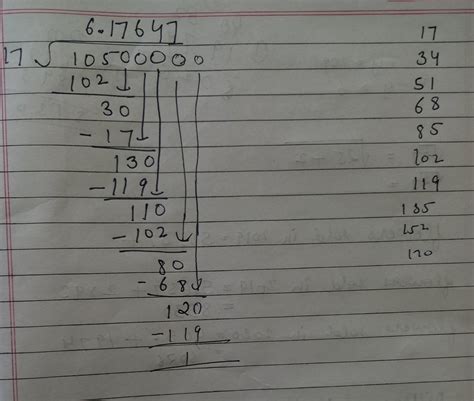 6.17647
17 √ 105000000
102
30
- 17
130
- 119
110
- 102
80
- 68
120
- 119
1
17
34
51
68
85
102
119
135
152
170